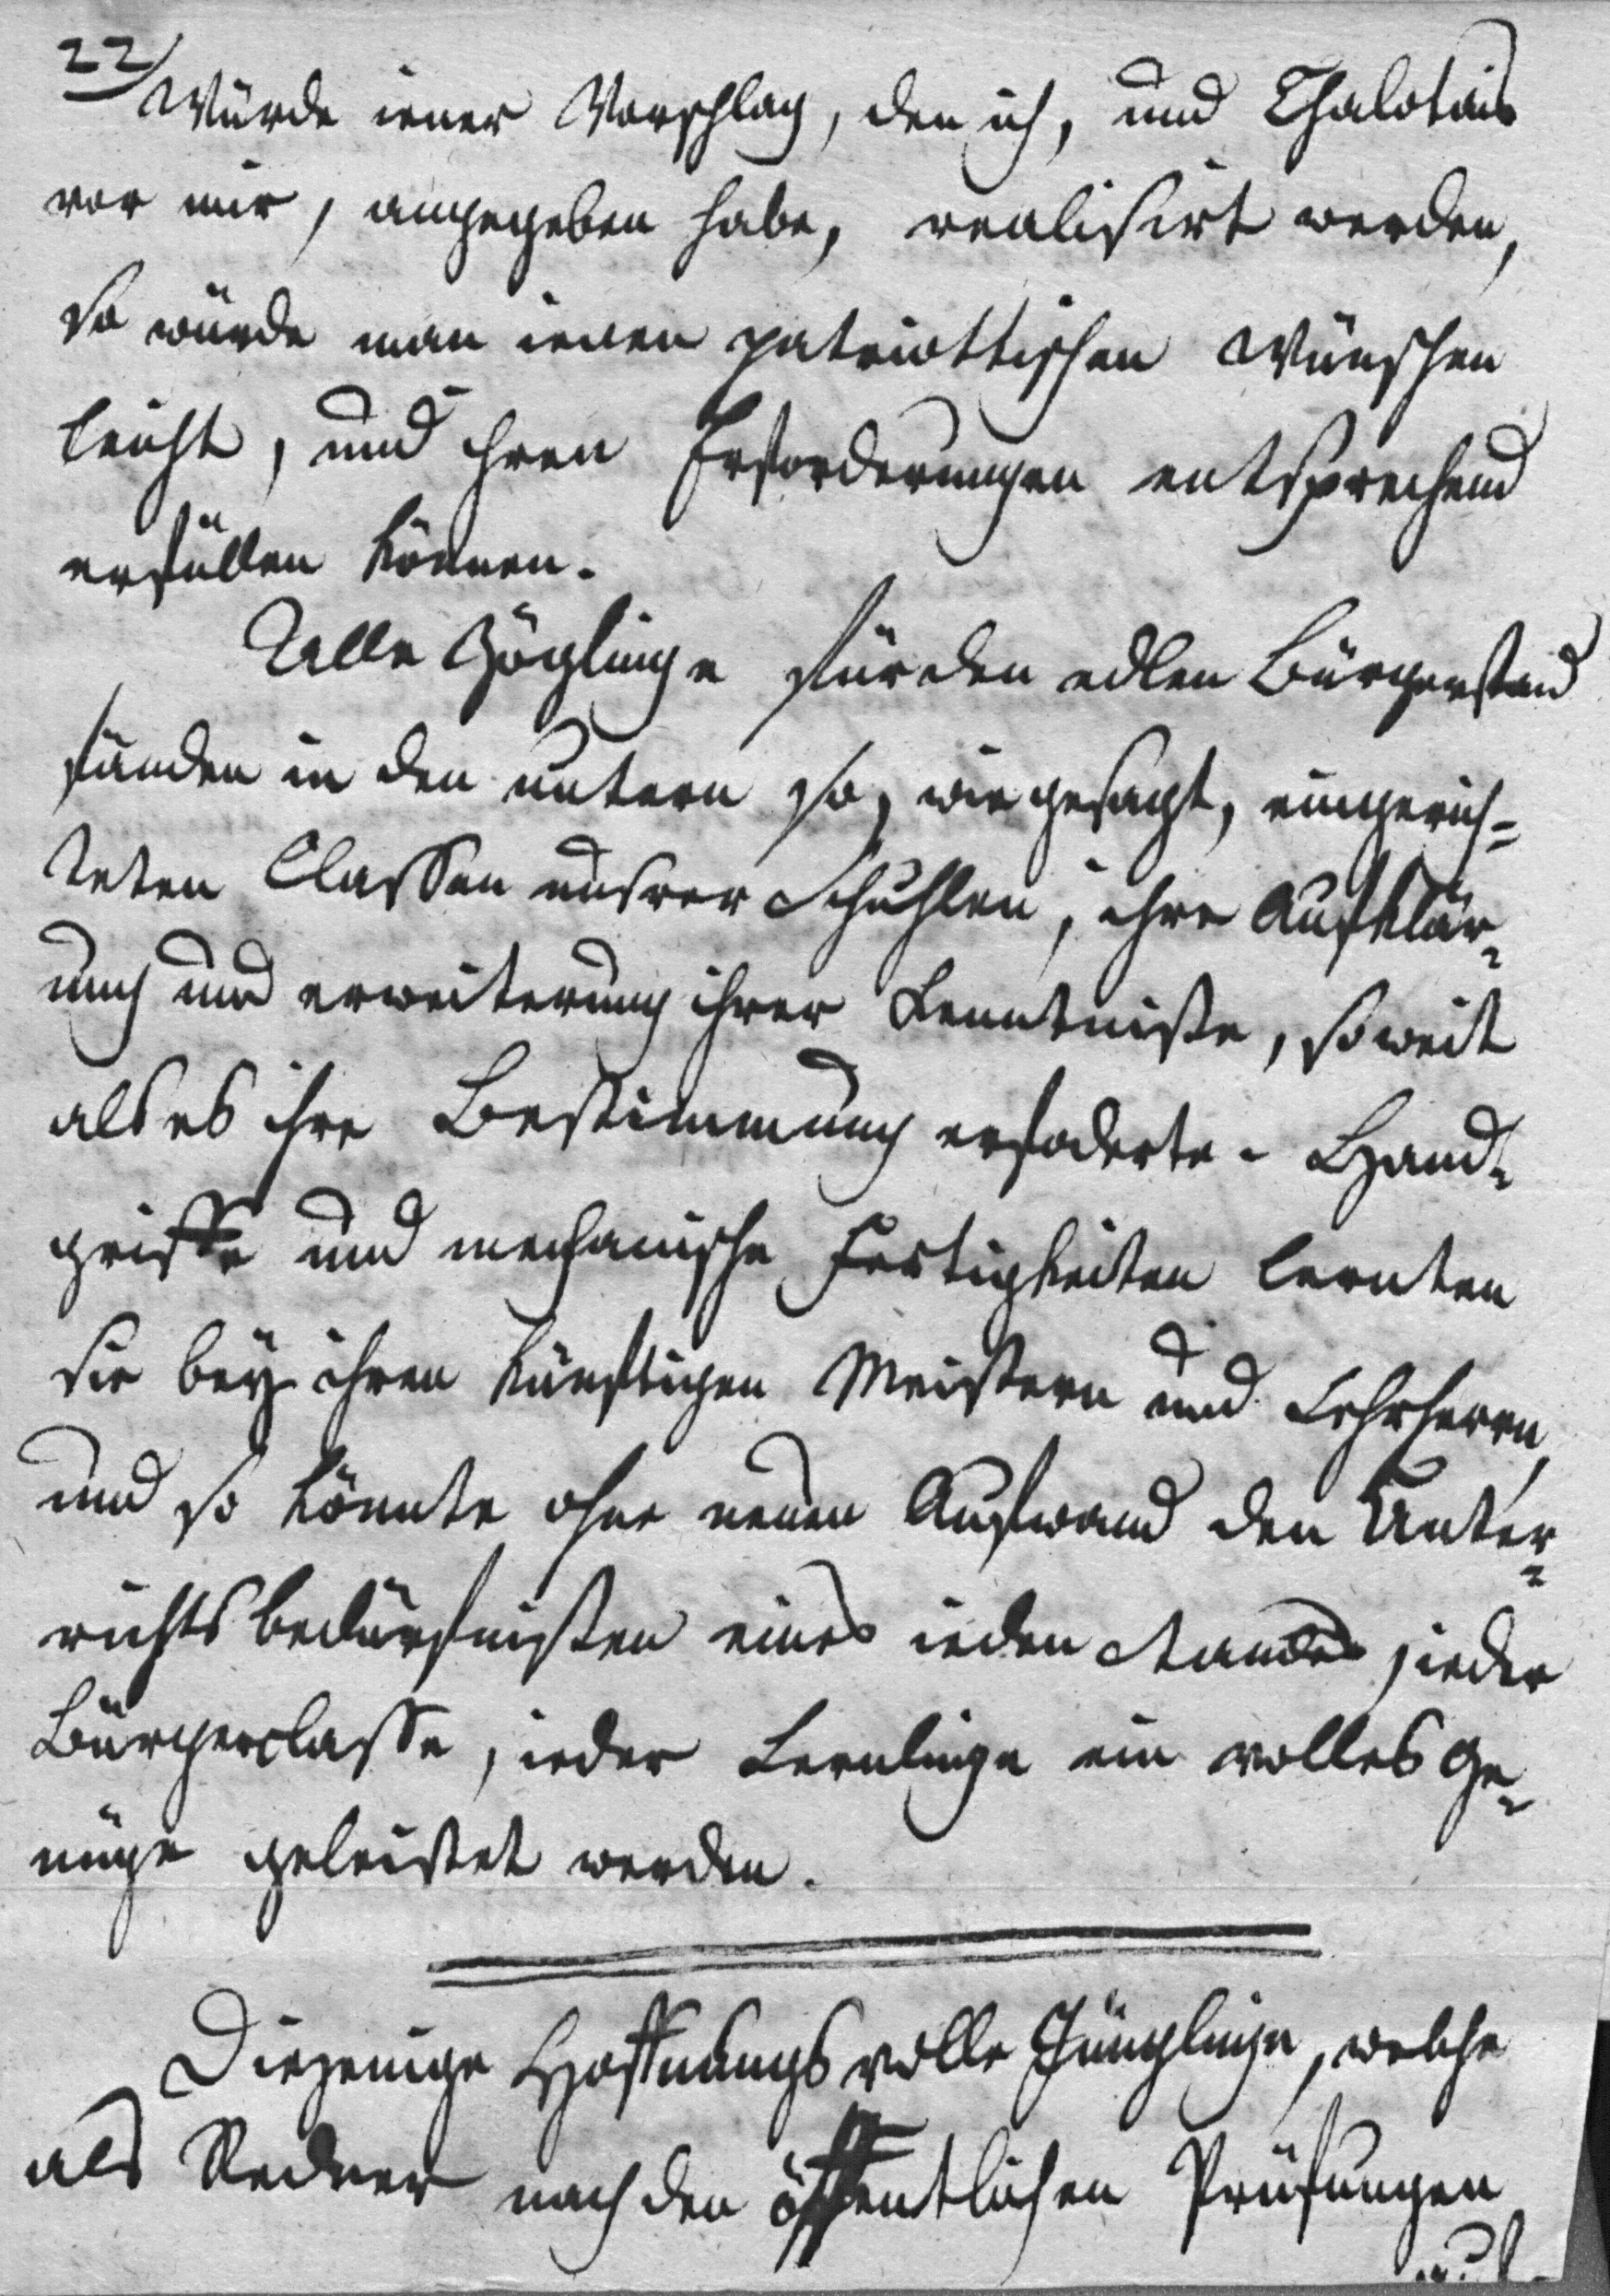 22
Würde iener Vorschlag, den ich, und Chalotais
vor mir, angegeben habe, realisirt werden,
so würde man ienen patriottischen Wünschen
leicht, und ihren Erforderungen entsprechend
erfüllen können.
Alle Zöglinge für den edlen Bürgerstand
fänden in den untern so, wie gesagt, eingerich=
teten Classen unsrer Schuhlen, ihre Aufklär=
ung und erweiterung ihrer Kenntniße, so weit
als es ihre Bestimmung erfoderte. Hand=
griffe und mechanische Fertigkeiten lernten
sie bey ihren künftigen Meistern und Lehrherrn,
und so könnte ohne neuen Aufwand den Unter=
richtsbedürfnißen eines ieden Standes, ieder
Bürgerclasse, ieder Lernlinge ein volles Ge=
nüge geleistet werden.
Diejenige Hoffnungsvolle Jünglinge, welche
als Redner nach den öffentlichen Prüfungen
auf=